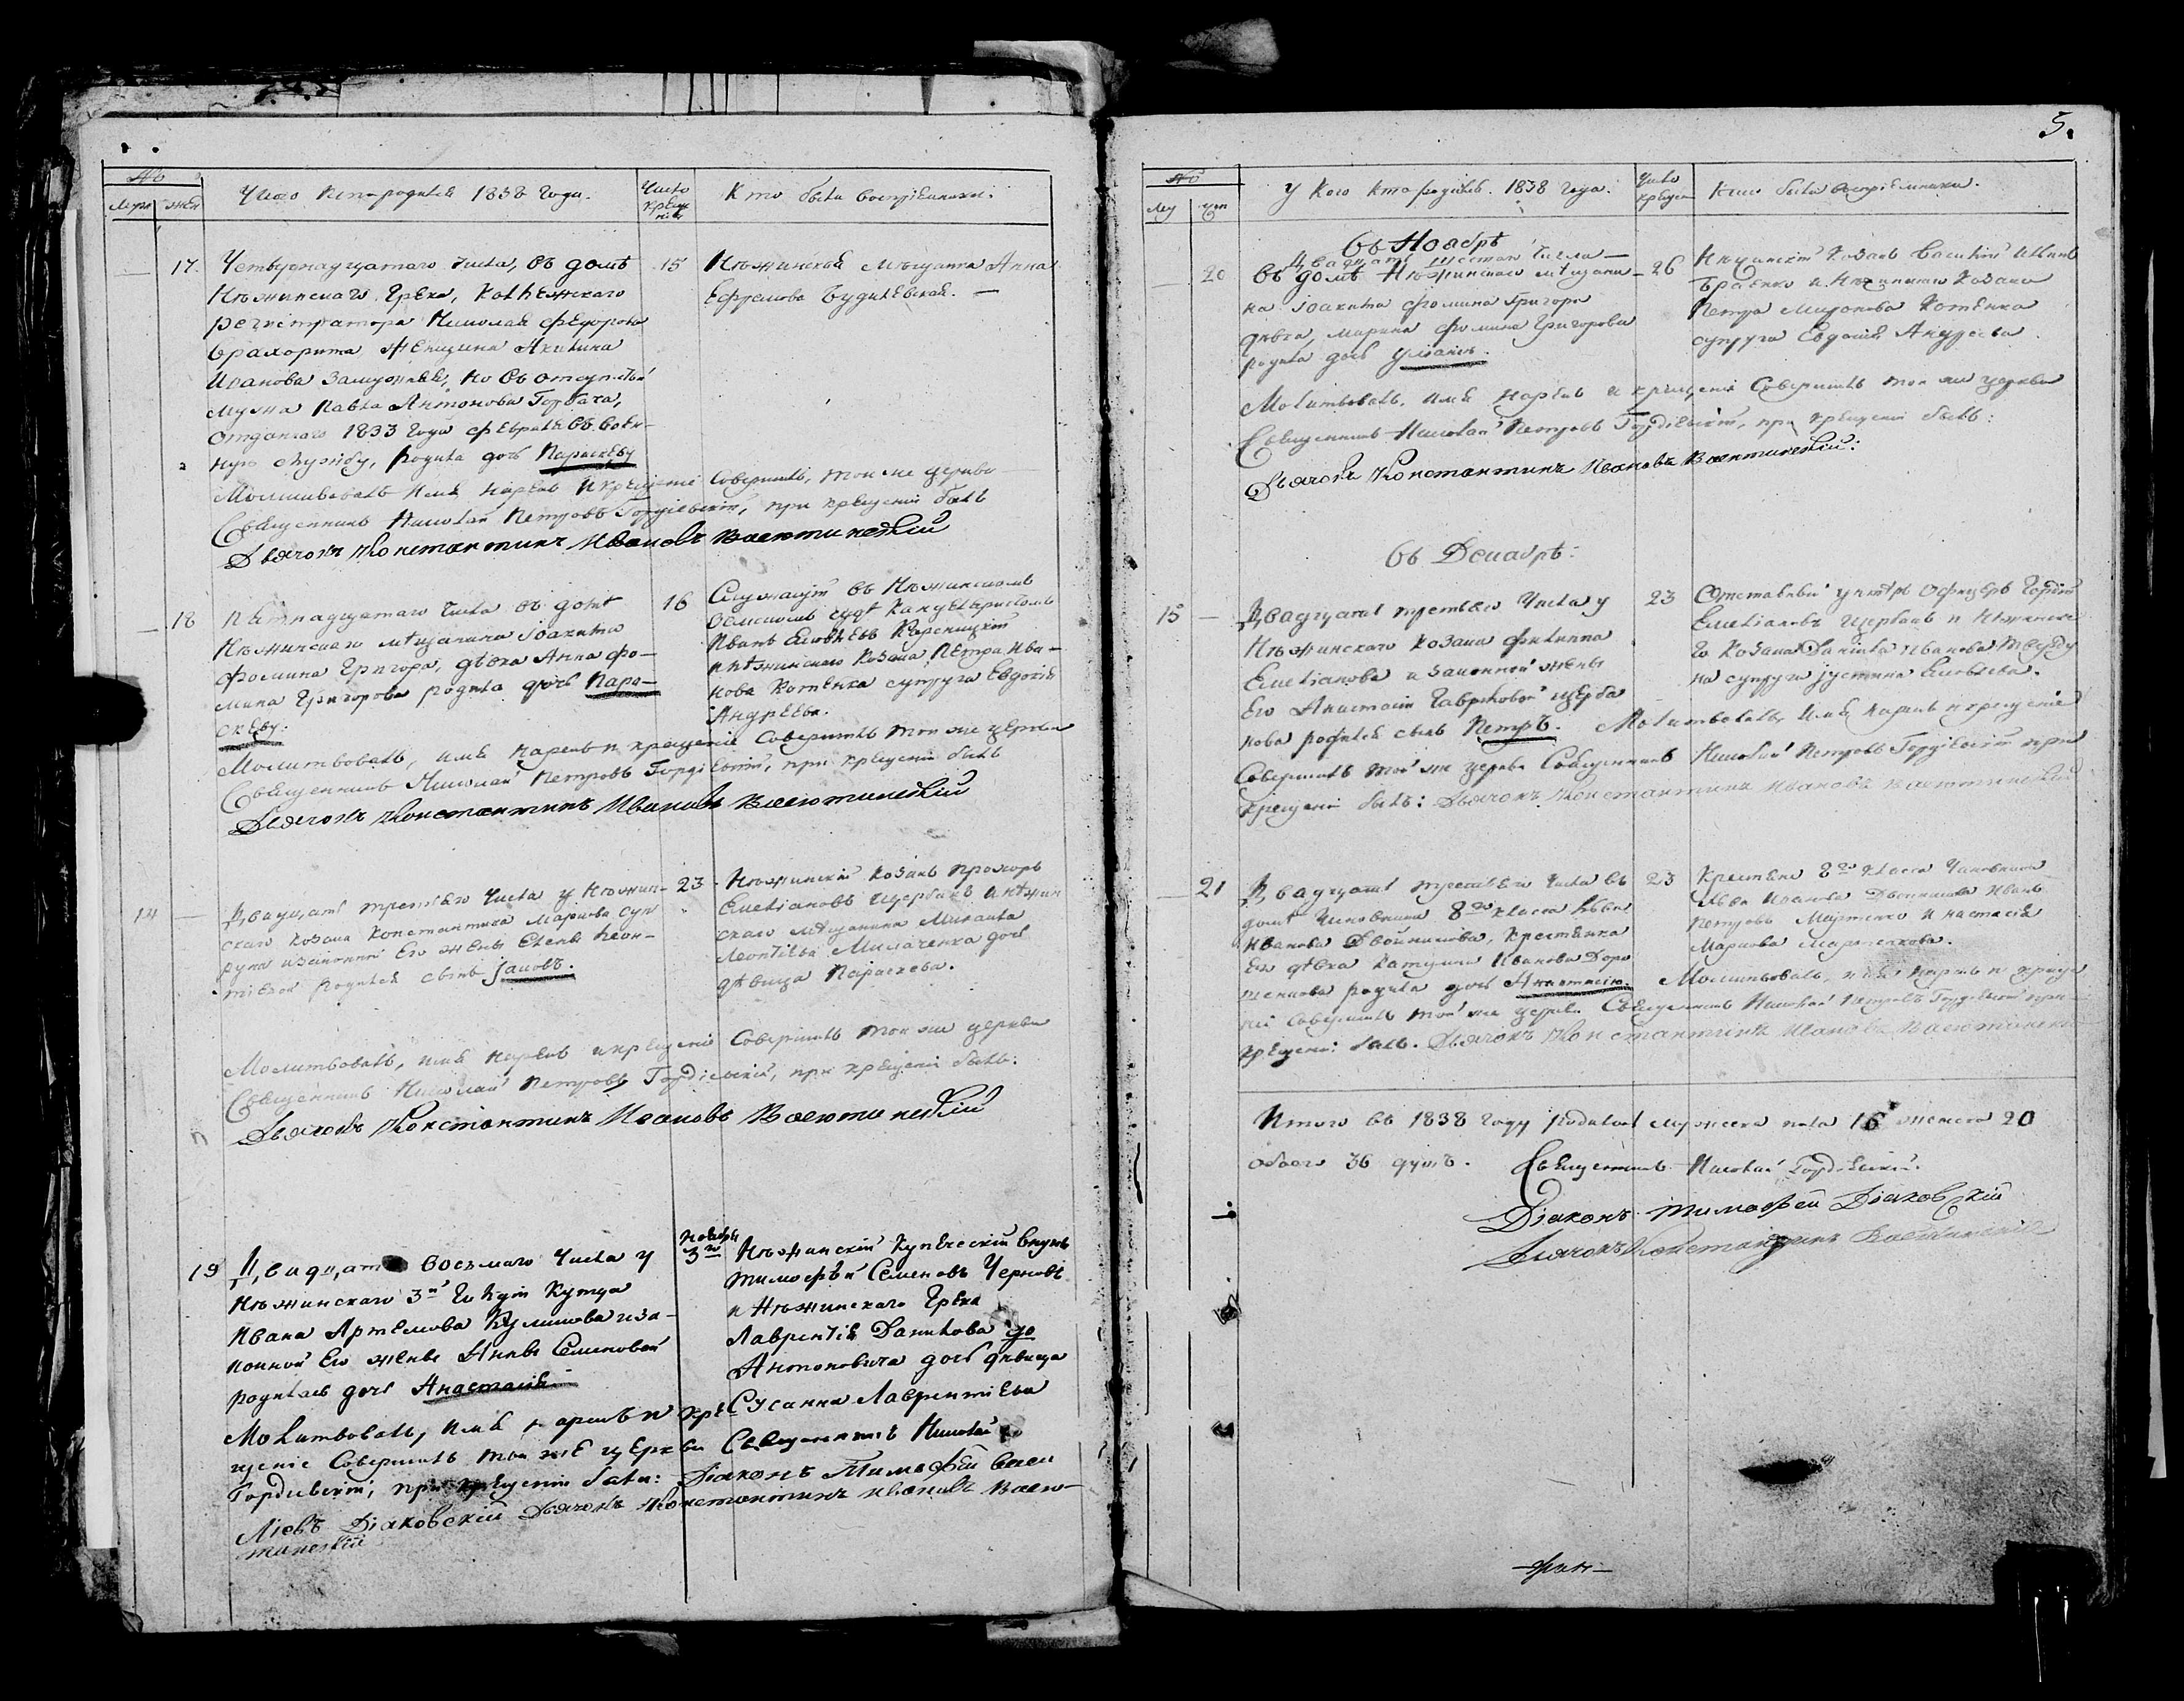 №
муж жен
Число кто родился 1838 года.
Число крещенія
Кто были воспріемники:
17.
Четырнадцатаго числа, въ домѣ
Нѣжинскаго Грека, Коллежскаго
регистратора Николая Федорова
женщина Акилина
Иванова замужняя, но въ отсутствіи
мужа Павла Антонова Горбача,
отданнаго 1833 года февраля въ воен-
ную службу, родила дочь Параскеву
15
Нѣжинская мѣщанка Анна
Ефремова
Молитвовалъ имя нарекъ и крещеніе совершилъ, той же церкви
Священникъ Николай Петровъ Гордіевскій, при крещеніи былъ
Дьячокъ Константинъ Ивановъ Васютинскій
18
Пятнадцатаго числа въ домѣ
Нѣжинскаго мѣщанина Іоакима
Фомина Григора, дѣвка Анна Фо-
мина Григорова родила дочь Пара-
скеву.
16
Служащій въ Нѣжинскомъ
судѣ Канцеляристомъ
Иванъ
и нѣжинскаго козака Петра Ива-
нова Котенка супруга Евдокія
Андреева.
Молитвовалъ, имя нарекъ и крещеніе совершилъ той же церкви
Священникъ Николай Петровъ Гордіевскій, при крещеніи былъ
Дьячокъ Константинъ Ивановъ Васютинскій
14
Двадцать третьяго числа у Нѣжин-
скаго козака Константина Маркова
и законной его жены Елены Леон-
тіевой родился сынъ Іаковъ.
23
Нѣжинскій козакъ Прохоръ
Емеліановъ Щербакъ и нѣжин
скаго мѣщанина Михаила
Леонтіева дочь
дѣвица Параскева.
Молитвовалъ, имя нарекъ и крещеніе совершилъ той же церкви
Священникъ Николай Петровъ Гордіевскій, при крещеніи былъ:
Дьячокъ Константинъ Ивановъ Васютинскій
19
Двадцать восьмаго числа у
Нѣжинскаго 3й гильдіи купца
Ивана Артемова Куликова и за-
конной его жены Анны Семеновой
родилась дочь Анастасія
Ноября
3го
Нѣжинскій купеческій внукъ
Тимофѣй Семеновъ Черновъ
и Нѣжинскаго Грека
Лаврентія Данилова
Антоновича дочь дѣвица
Сусанна Лаврентіева
Молитвовалъ, имя нарекъ и кре-
щеніе совершилъ той же церкви Священникъ Николай
Гордіевскій, при крещеніи были: Діаконъ Тимофѣй Васи
Ліевъ Діаковскій Дьячокъ Константинъ Ивановъ Васю-
тинскій
5.
№
муж жен
У кого кто родился. 1838 года.
Число крещен
Кто были воспріемники.
Въ Ноябрѣ
20
Двадцать шестаго числа
въ домѣ Нѣжинскаго мѣщани-
на Іоакима Фомина Григора
дѣвка, Марина Фомина Григорова
родила дочь
26
Нѣжинскій козакъ Василій
и Нѣжинскаго козака
Петра Миронова Котенка
супруга Евдокія Андреева
Молитвовалъ, имя нарекъ и крещеніе совершилъ той же церкви
Священникъ Николай Петровъ Гордіевскій, при крещеніи былъ:
Дьячокъ Константинъ Ивановъ Васютинскій:
Въ Декабрѣ:
15
Двадцать третьяго числа у
Нѣжинскаго козака Филиппа
Емеліанова и законной жены
его Анастасіи Гавриловой Щерба
ковой родился сынъ Петръ.
23
Отставный унтеръ Офицеръ Гордій
Емеліановъ Щербакъ и Нѣжинска
го козака Данила Иванова
супруга Іустина
Молитвовалъ, имя нарекъ и крещеніе
совершилъ той же церкви Священникъ Николай Петровъ Гордіевскій при
крещеніи былъ: Дьячокъ Константинъ Ивановъ Васютинскій
21
Двадцать третьяго числа въ
домѣ чиновника 8го класса Льва
Иванова Двойникова, крестьянка
его дѣвка Иванова
родила дочь Анастасію.
23
Крестьяне 8го класса чиновника
Льва Иванова Двойникова Иванъ
Петровъ и Настасія
Маркова
Молитвовалъ, имя нарекъ и креще
ніе совершилъ той же церкви Священникъ Николай Петровъ Гордіевскій при
крещеніи былъ. Дьячокъ Константинъ Ивановъ Васютинскій
Итого въ 1838 году родилось мужеска пола 16 женска 20
обоего 36 душъ.
Священникъ Николай Гордіевскій.
Діаконъ Тимофей Діаковскій
Дьячокъ Константинъ Васютинскій